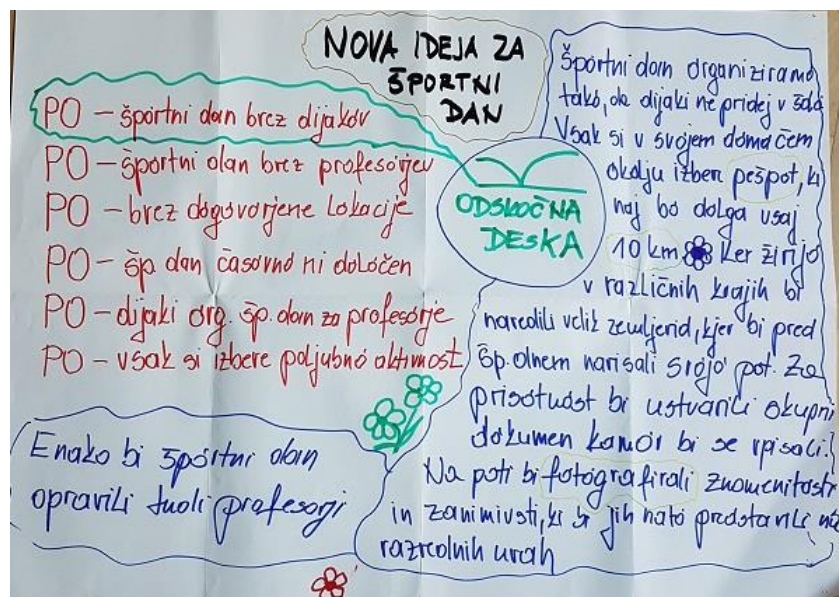 NOVA IDEJA ZA
ŠPORTNI
DAN
PO – športni dan brez dijakov
PO – športni dan brez profesorjev
PO – brez dogovorjene lokacije
PO – šp. dan časovno ni določen
PO – dijaki org. šp. dan za profesorje
PO – vsak si izbere poljubno aktivnost
ODSKOČNA
DESKA
Športni dan organiziramo
tako, da dijaki ne pridej v šolo
Vsak si v svojem domačem
okolju izbere pešpot, ki
naj bo dolga vsaj
10 km Ker živijo
v različnih krajih bi
naredili velik zemljevid, kjer bi pred
šp. dnem narisali svojo pot. Za
prisotnost bi ustvarili skupni
dokumen kamor bi se vpisali.
Na poti bi fotografirali znamenitosti
in zanimivsti, ki bi jih nato predstavili na
razrednih urah
Enako bi športni dan
opravili tudi profesorji